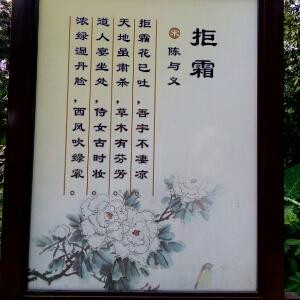 拒霜
宋 陈与义
拒霜花已吐，吾宇不凄凉。
天地虽肃杀，草木有芬芳。
道人宴坐处，侍女古时妆。
浓绿湿丹脸，西风吹绿裳。